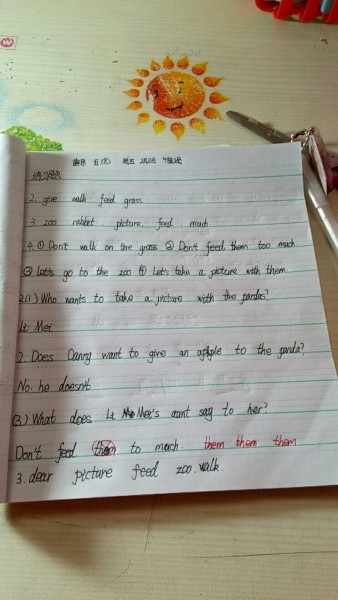 2. give walk feed grass
3. zoo. rabbit picture. feed. much
4. ① Don't walk on the grass ② Don't feed them too much
③ let's go to the zoo ④ Let's take a picture with them
2.(1) Who wants to take a picture with the pandas?
Li Mei
2. Does Danny want to give an apple to the panda?
No. he doesn't
(3.) What does Li Mei's aunt say to her?
Don't feed them to much. them them them
3. dear picture feed zoo. walk.